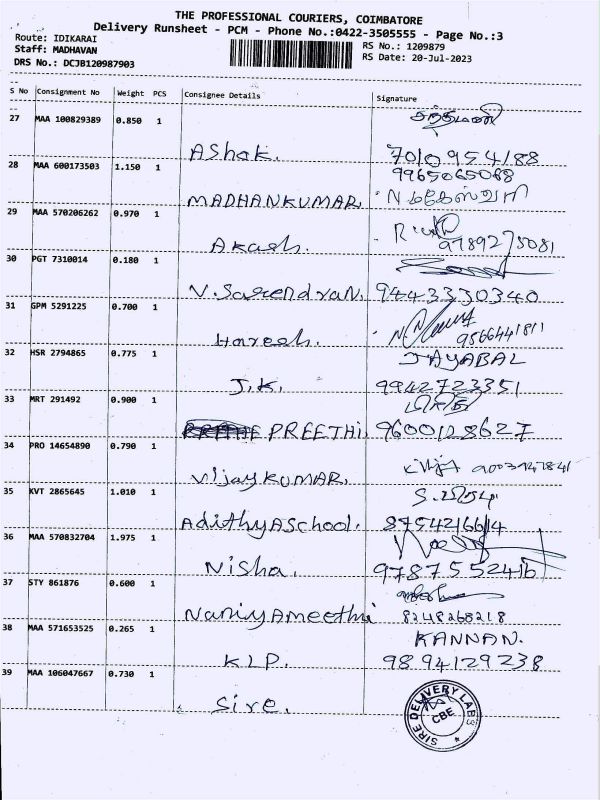 THE PROFESSIONAL COURIERS, COIMBATORE
Delivery Runsheet - PCM - Phone No.:0422-3505555 - Page No.:3
Route: IDIKARAI RS No.: 1209879
Staff: MADHAVAN RS Date: 20-Jul-2023
DRS No.: DCJB120987903
S No Consignment No Weight PCS Consignee Details Signature
27 MAA 100829389 0.850 1
AShok. 7010954188
28 MAA 600173503 1.150 1 9965065068
MADHANKUMAR. N மகேஸ்வரி
29 MAA 570206262 0.970 1
Akash. 9789275081
30 PGT 7310014 0.180 1
V.Sarendran. 9443330340
31 GPM 5291225 0.700 1
Hareesh. 9566441811
32 HSR 2794865 0.775 1 JAYABAL
J.K. 9942723351
33 MRT 291492 0.900 1
PREETHI. 9600128627
34 PRO 14654890 0.790 1
VijayKUMAR.
35 KVT 2865645 1.010 1
AdithyASchool. 8754216614
36 MAA 570832704 1.975 1
Nisha. 9787552416
37 STY 861876 0.600 1
NaniyAmeethi 8248268218
38 MAA 571653525 0.265 1 KANNAN.
KLP. 9894129238
39 MAA 106047667 0.730 1
Sire.
SIRE DELIVERY LABS
CBE